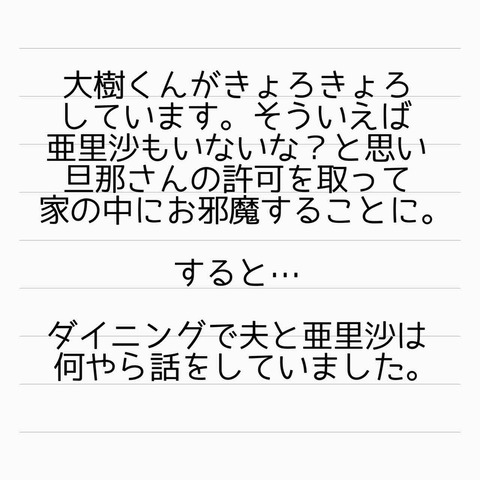 大樹くんがきょろきょろ
しています。そういえば
亜里沙もいないな？と思い
旦那さんの許可を取って
家の中にお邪魔することに。
すると…
ダイニングで夫と亜里沙は
何やら話をしていました。